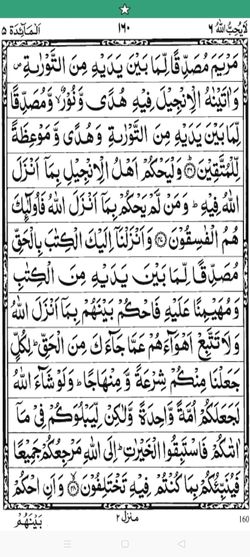 لَا يُحِبُّ اللهُ ٦ ١٦٠ اَلْمَآئِدَة ٥
مَرْيَمَ مُصَدِّقًا لِّمَا بَيْنَ يَدَيْهِ مِنَ التَّوْرٰىةِ ۪
وَاٰتَيْنٰهُ الْاِنْجِيْلَ فِيْهِ هُدًى وَّنُوْرٌ ۙ وَّمُصَدِّقًا
لِّمَا بَيْنَ يَدَيْهِ مِنَ التَّوْرٰىةِ وَهُدًى وَّمَوْعِظَةً
لِّلْمُتَّقِيْنَ ﴿۴۶﴾ وَلْيَحْكُمْ اَهْلُ الْاِنْجِيْلِ بِمَاۤ اَنْزَلَ
اللهُ فِيْهِ ؕ وَمَنْ لَّمْ يَحْكُمْ بِمَاۤ اَنْزَلَ اللهُ فَاُولٰٓئِكَ
هُمُ الْفٰسِقُوْنَ ﴿۴۷﴾ وَاَنْزَلْنَاۤ اِلَيْكَ الْكِتٰبَ بِالْحَقِّ
مُصَدِّقًا لِّمَا بَيْنَ يَدَيْهِ مِنَ الْكِتٰبِ
وَمُهَيْمِنًا عَلَيْهِ فَاحْكُمْ بَيْنَهُمْ بِمَاۤ اَنْزَلَ اللهُ
وَلَا تَتَّبِعْ اَهْوَآءَهُمْ عَمَّا جَآءَكَ مِنَ الْحَقِّ ؕ لِكُلٍّ
جَعَلْنَا مِنْكُمْ شِرْعَةً وَّمِنْهَاجًا ؕ وَلَوْ شَآءَ اللهُ
لَجَعَلَكُمْ اُمَّةً وَّاحِدَةً وَّلٰكِنْ لِّيَبْلُوَكُمْ فِيْ مَاۤ
اٰتٰىكُمْ فَاسْتَبِقُوا الْخَيْرٰتِ ؕ اِلَى اللهِ مَرْجِعُكُمْ جَمِيْعًا
فَيُنَبِّئُكُمْ بِمَا كُنْتُمْ فِيْهِ تَخْتَلِفُوْنَ ﴿۴۸﴾ وَاَنِ احْكُمْ
منزل ٢ بَيْنَهُمْ
160